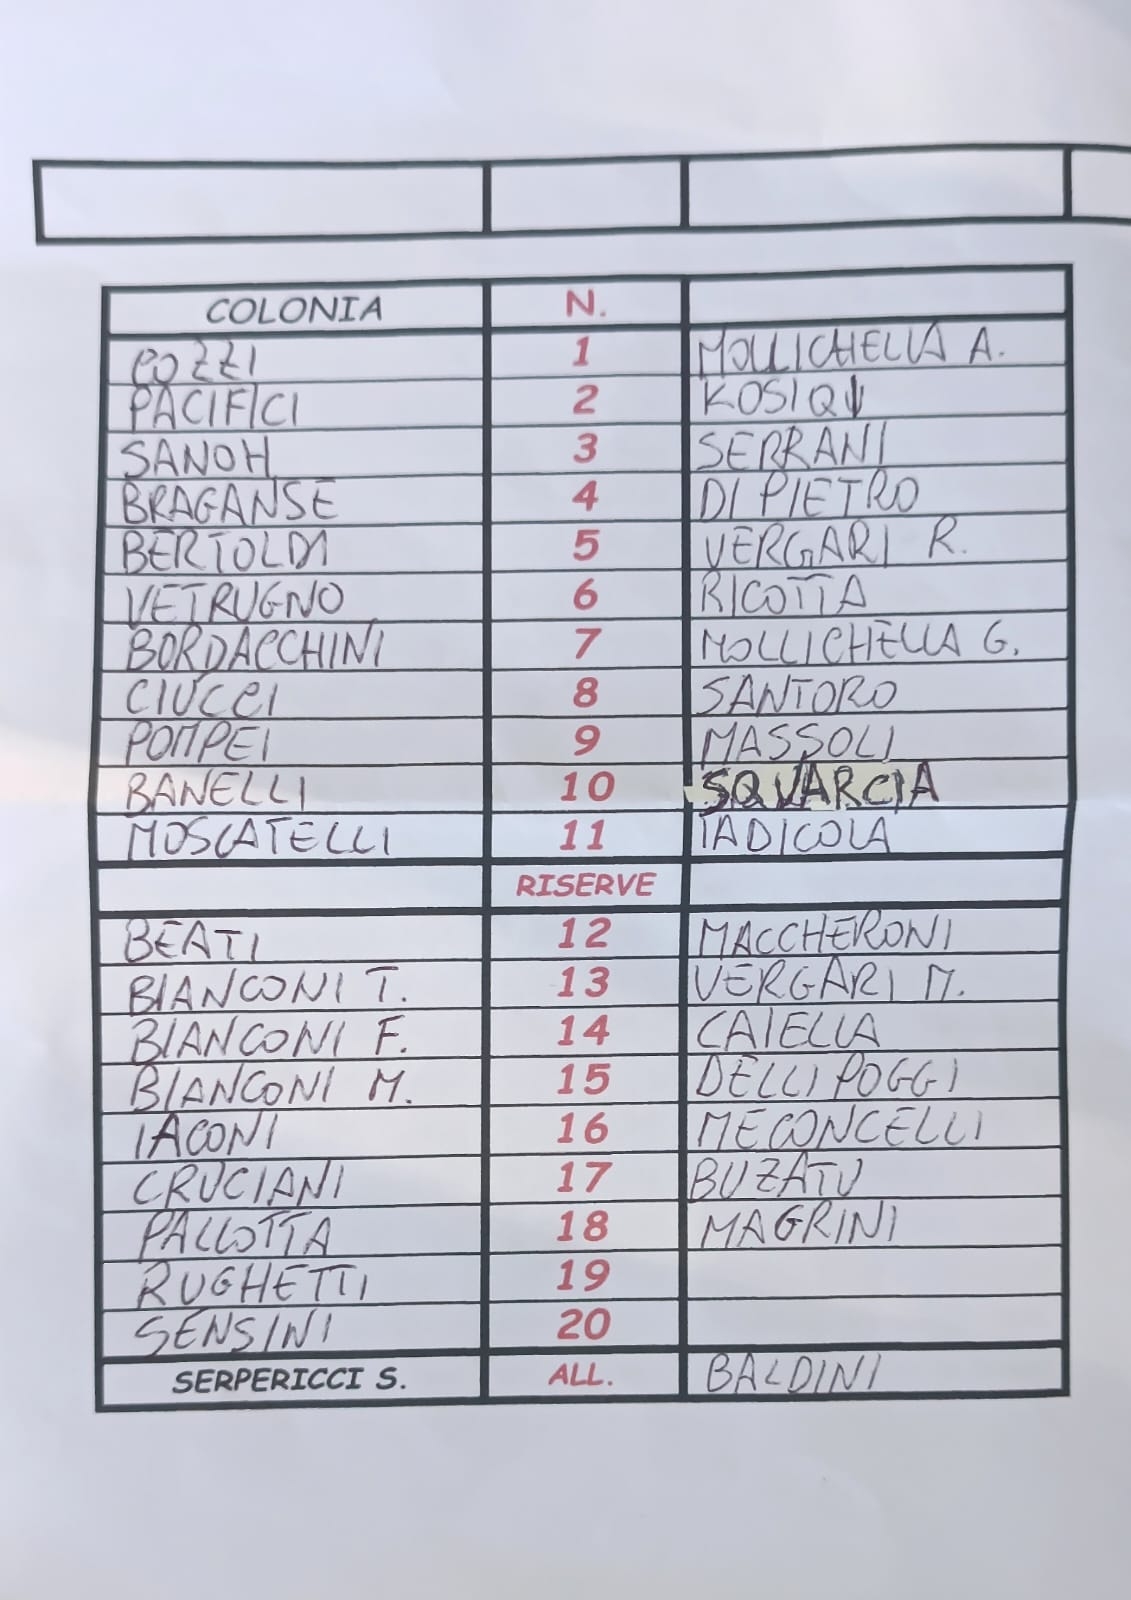 COLONIA N.
POZZI 1 MOLLICHELLA A.
PACIFICI 2
SANOH 3 SERRANI
BRAGANSE 4 DI PIETRO
BERTOLDI 5 VERGARI R.
VETRUGNO 6 RICOTTA
BORDACCHINI 7 MOLLICHELLA G.
CIUCCI 8 SANTORO
POMPEI 9 MASSOLI
BANELLI 10 SQUARCIA
MOSCATELLI 11 IADICOLA
RISERVE
BEATI 12 MACCHERONI
BIANCONI T. 13 VERGARI M.
BIANCONI F. 14 CAIELLA
BIANCONI M. 15 DELLI POGGI
IACONI 16 MECONCELLI
CRUCIANI 17 BUZATU
PALLOTTA 18 MAGRINI
RUGHETTI 19
SENSINI 20
SERPERICCI S. ALL. BALDINI